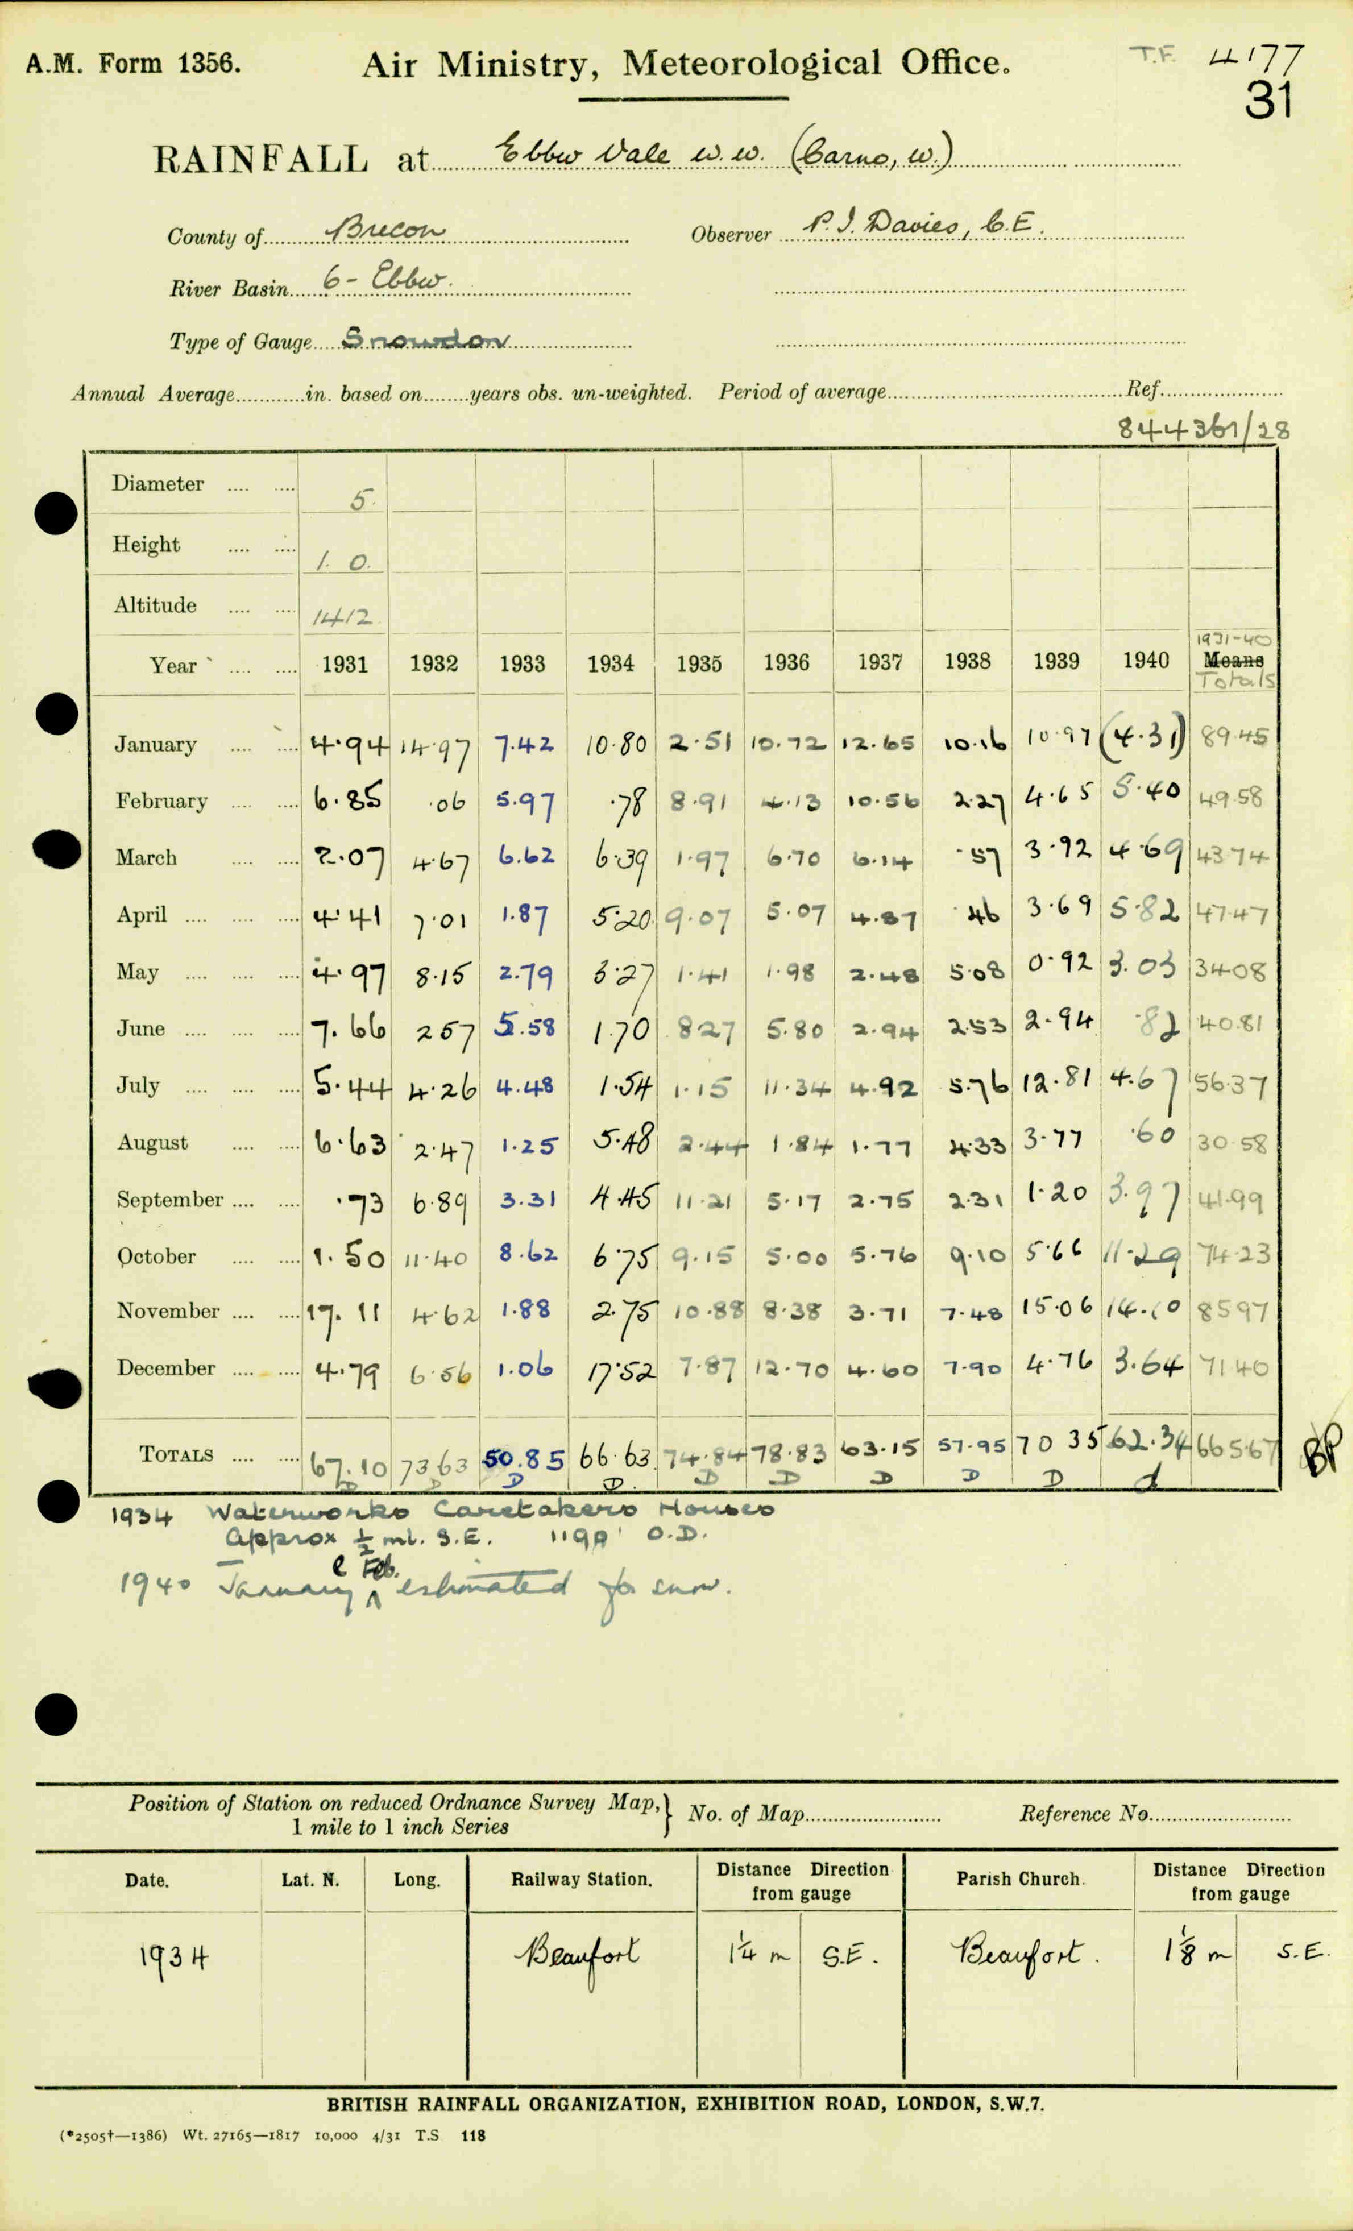 A.M. Form 1356. Air Ministry, Meteorological Office. T.F. 4177
31
RAINFALL at Ebbw Vale W.W. (Carno, W.)
County of Brecon Observer P.J. Davies, C.E.
River Basin 6 - Ebbw.
Type of Gauge Snowdon
Annual Average in. based on years obs. un-weighted. Period of average Ref.
844361/28
Diameter 5.
Height 1. 0.
Altitude 1412
1931-40
Year 1931 1932 1933 1934 1935 1936 1937 1938 1939 1940 Means
Totals
January 4.94 14.97 7.42 10.80 2.51 10.72 12.65 10.16 10.97 (4.31) 89.45
February 6.85 .06 5.97 .78 8.91 4.13 10.56 2.27 4.65 5.40 49.58
March 2.07 4.67 6.62 6.39 1.97 6.70 6.14 .57 3.92 4.69 43.74
April 4.41 7.01 1.87 5.20 9.07 5.07 4.87 .46 3.69 5.82 47.47
May 4.97 8.15 2.79 3.27 1.41 1.98 2.48 5.08 0.92 3.03 34.08
June 7.66 2.57 5.58 1.70 8.27 5.80 2.94 2.53 2.94 .82 40.81
July 5.44 4.26 4.48 1.54 1.15 11.34 4.92 5.76 12.81 4.67 56.37
August 6.63 2.47 1.25 5.48 2.44 1.84 1.77 4.33 3.77 .60 30.58
September .73 6.89 3.31 4.45 11.21 5.17 2.75 2.31 1.20 3.97 41.99
October 1.50 11.40 8.62 6.75 9.15 5.00 5.76 9.10 5.66 11.29 74.23
November 17.11 4.62 1.88 2.75 10.88 8.38 3.71 7.48 15.06 14.10 85.97
December 4.79 6.56 1.06 17.52 7.87 12.70 4.60 7.90 4.76 3.64 71.40
TOTALS 67.10 73.63 50.85 66.63 74.84 78.83 63.15 57.95 70.35 62.34 665.67 BP
D D D D D D D D D d
1934 Waterworks Caretakers Houses
Approx ½ ml. S.E. 1190' O.D.
& Feb.
1940 January ^ estimated for snow.
Position of Station on reduced Ordnance Survey Map, } No. of Map Reference No.
1 mile to 1 inch Series
Date. Lat. N. Long. Railway Station. Distance Direction from gauge Parish Church. Distance Direction from gauge
1934 Beaufort 1¼ m S.E. Beaufort. 1⅛ m S.E.
BRITISH RAINFALL ORGANIZATION, EXHIBITION ROAD, LONDON, S.W.7.
(*2505†—1386) Wt. 27165—1817 10,000 4/31 T.S 118